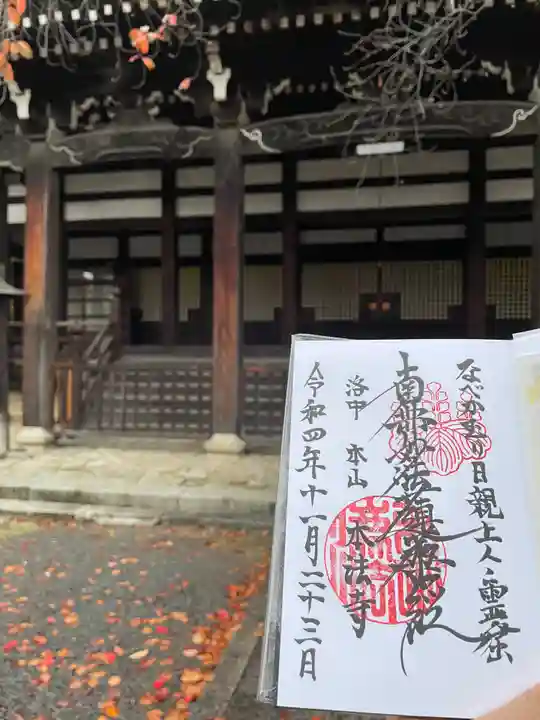 なべかむり日親上人霊窟
南無妙法蓮華経
洛中 本山 本法寺
令和四年十一月二十三日